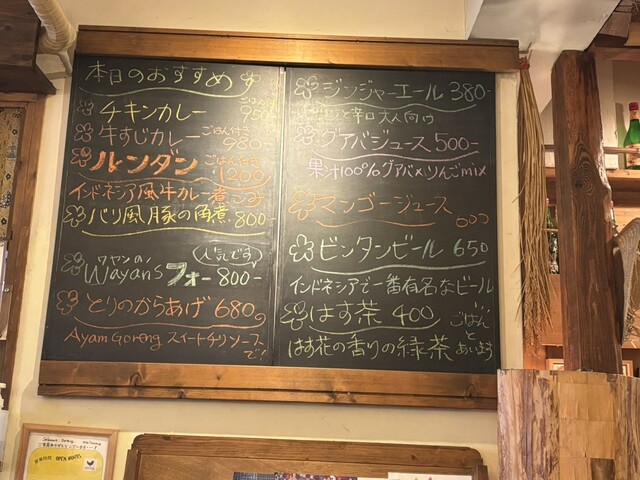 本日のおすすめ
チキンカレー ごはん付き 950-
牛すじカレー ごはん付き 980-
ルンダン ごはん付き 1200
インドネシア風牛カレー煮こみ
バリ風豚の角煮 800-
ワヤンの (人気です)
Wayan's フォー 800-
とりのからあげ 680.
Ayam Goreng スイートチリソースで!
ジンジャーエール 380-
と辛口大人向け
グアバジュース 500-
果汁100%グアバ×りんごmix
マンゴージュース 600
ビンタンビール 650
インドネシアで一番有名なビール
はす茶 400
はす花の香りの緑茶
ごはんとあいます
OPEN